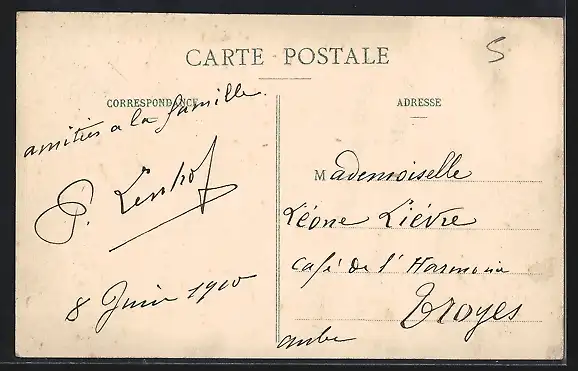 CARTE POSTALE
S
CORRESPONDANCE
amitiés a la famille
P. Lenhof
8 Juin 1910
ADRESSE
Mademoiselle
Léone Lièvre
Café de l'Harmonie
Troyes
aube